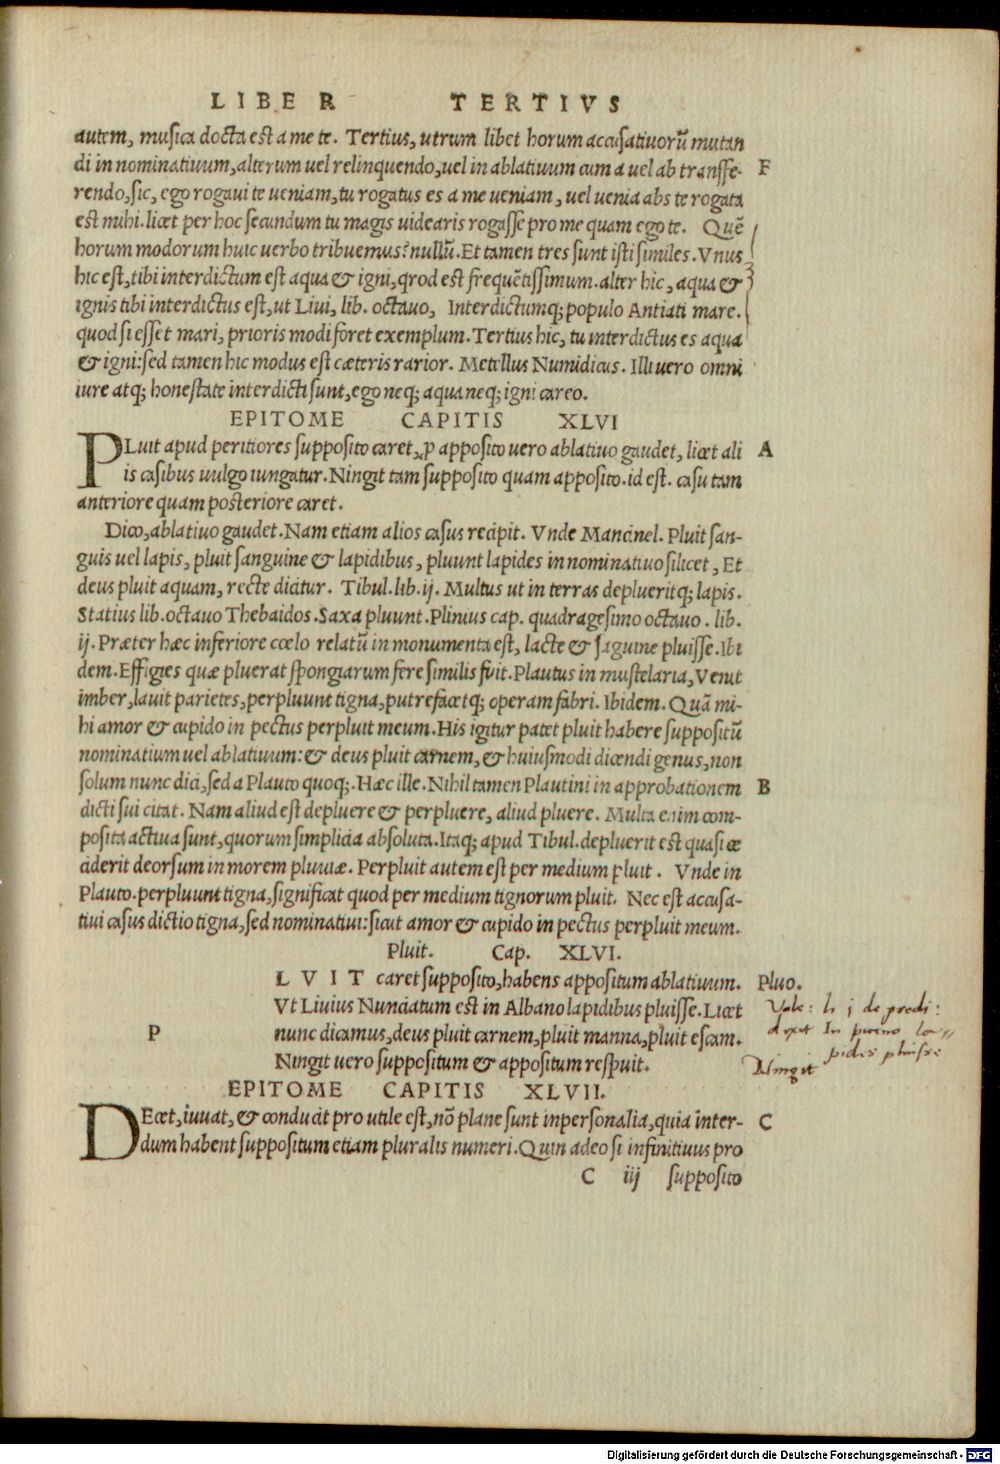 LIBER TERTIVS
autem, musica docta est a me te. Tertius, utrum libet horum accusatiuorũ mutan
di in nominatiuum, alterum uel relinquendo, uel in ablatiuum cum a uel ab transffe- F
rendo, sic, ego rogaui te ueniam, tu rogatus es a me ueniam, uel uenia abs te rogata
est mihi. licet per hoc secundum tu magis uidearis rogasse pro me quam ego te. Quẽ
horum modorum huic uerbo tribuemus? nullũ. Et tamen tres sunt isti similes. Vnus
hic est, tibi interdictum est aqua & igni, qrod est frequẽtissimum. alter hic, aqua &
ignis tibi interdictus est, ut Liui, lib. octauo, Interdictumq; populo Antiati mare.
quod si esset mari, prioris modi foret exemplum. Tertius hic, tu interdictus es aqua
& igni: sed tamen hic modus est cæteris rarior. Metellus Numidicus. Illi uero omni
iure atq; honestate interdicti sunt, ego neq; aqua neq; igni careo.
EPITOME CAPITIS XLVI
PLuit apud peritiores supposito caret, p apposito uero ablatiuo gaudet, licet ali A
is casibus uulgo iungatur. Ningit tam supposito quam apposito. id est. casu tam
anteriore quam posteriore caret.
Dico, ablatiuo gaudet. Nam etiam alios casus recipit. Vnde Mancinel. Pluit san-
guis uel lapis, pluit sanguine & lapidibus, pluunt lapides in nominatiuo silicet, Et
deus pluit aquam, recte dicitur. Tibul. lib. ij. Multus ut in terras depluerit q; lapis.
Statius lib. octauo Thebaidos. Saxa pluunt. Plinius cap. quadragesimo octauo. lib.
ij. Præter hæc inferiore cœlo relatũ in monumenta est, lacte & sãguine pluisse. Ibi
dem. Effigies quæ pluerat spongiarum fere similis fuit. Plautus in mustelaria, Venit
imber, lauit parietes, perpluunt tigna, putrefacet q; operam fabri. Ibidem. Quã mi-
hi amor & cupido in pectus perpluit meum. His igitur patet pluit habere suppositũ
nominatium uel ablatiuum: & deus pluit carnem, & huiusmodi dicendi genus, non
solum nunc dici, sed a Plauto quoq;. Hæc ille. Nihil tamen Plautini in approbationem B
dicti sui citat. Nam aliud est depluere & perpluere, aliud pluere. Multa enim com-
posita actiua sunt, quorum simplicia absoluta. Itaq; apud Tibul. depluerit est quasi ce
ciderit deorsum in morem pluuiæ. Perpluit autem est per medium pluit. Vnde in
Plauto. perpluunt tigna, significat quod per medium tignorum pluit. Nec est accusa-
tiui casus dictio tigna, sed nominatiui: sicut amor & cupido in pectus perpluit meum.
Pluit. Cap. XLVI.
LVIT caret supposito, habens appositum ablatiuum. Pluo.
Vt Liuius Nunciatum est in Albano lapidibus pluisse. Licet
P nunc dicamus, deus pluit carnem, pluit manna, pluit escam.
Ningit uero suppositum & appositum respuit. Ningit
EPITOME CAPITIS XLVII.
DEcet, iuuat, & conducit pro utile est, nõ plane sunt inpersonalia, quia inter- C
dum habent suppositum etiam pluralis numeri. Quin adeo si infinitiuus pro
C iij supposito
Digitalisierung gefördert durch die Deutsche Forschungsgemeinschaft - DFG